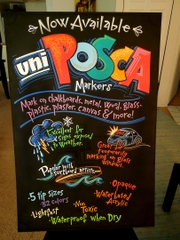 Now Available
uni POSCA
Markers
Mark on chalkboards, metal, wood, glass,
plastic, plaster, canvas & more!
Excellent for
signs exposed
to weather.
Great for
temporarily
marking on glass
windows.
Popular with
surfboard artists
.5 Tip Sizes
32 colors
Lightfast
Non Toxic
Opaque
Waterbased
Acrylic
Waterproof when Dry